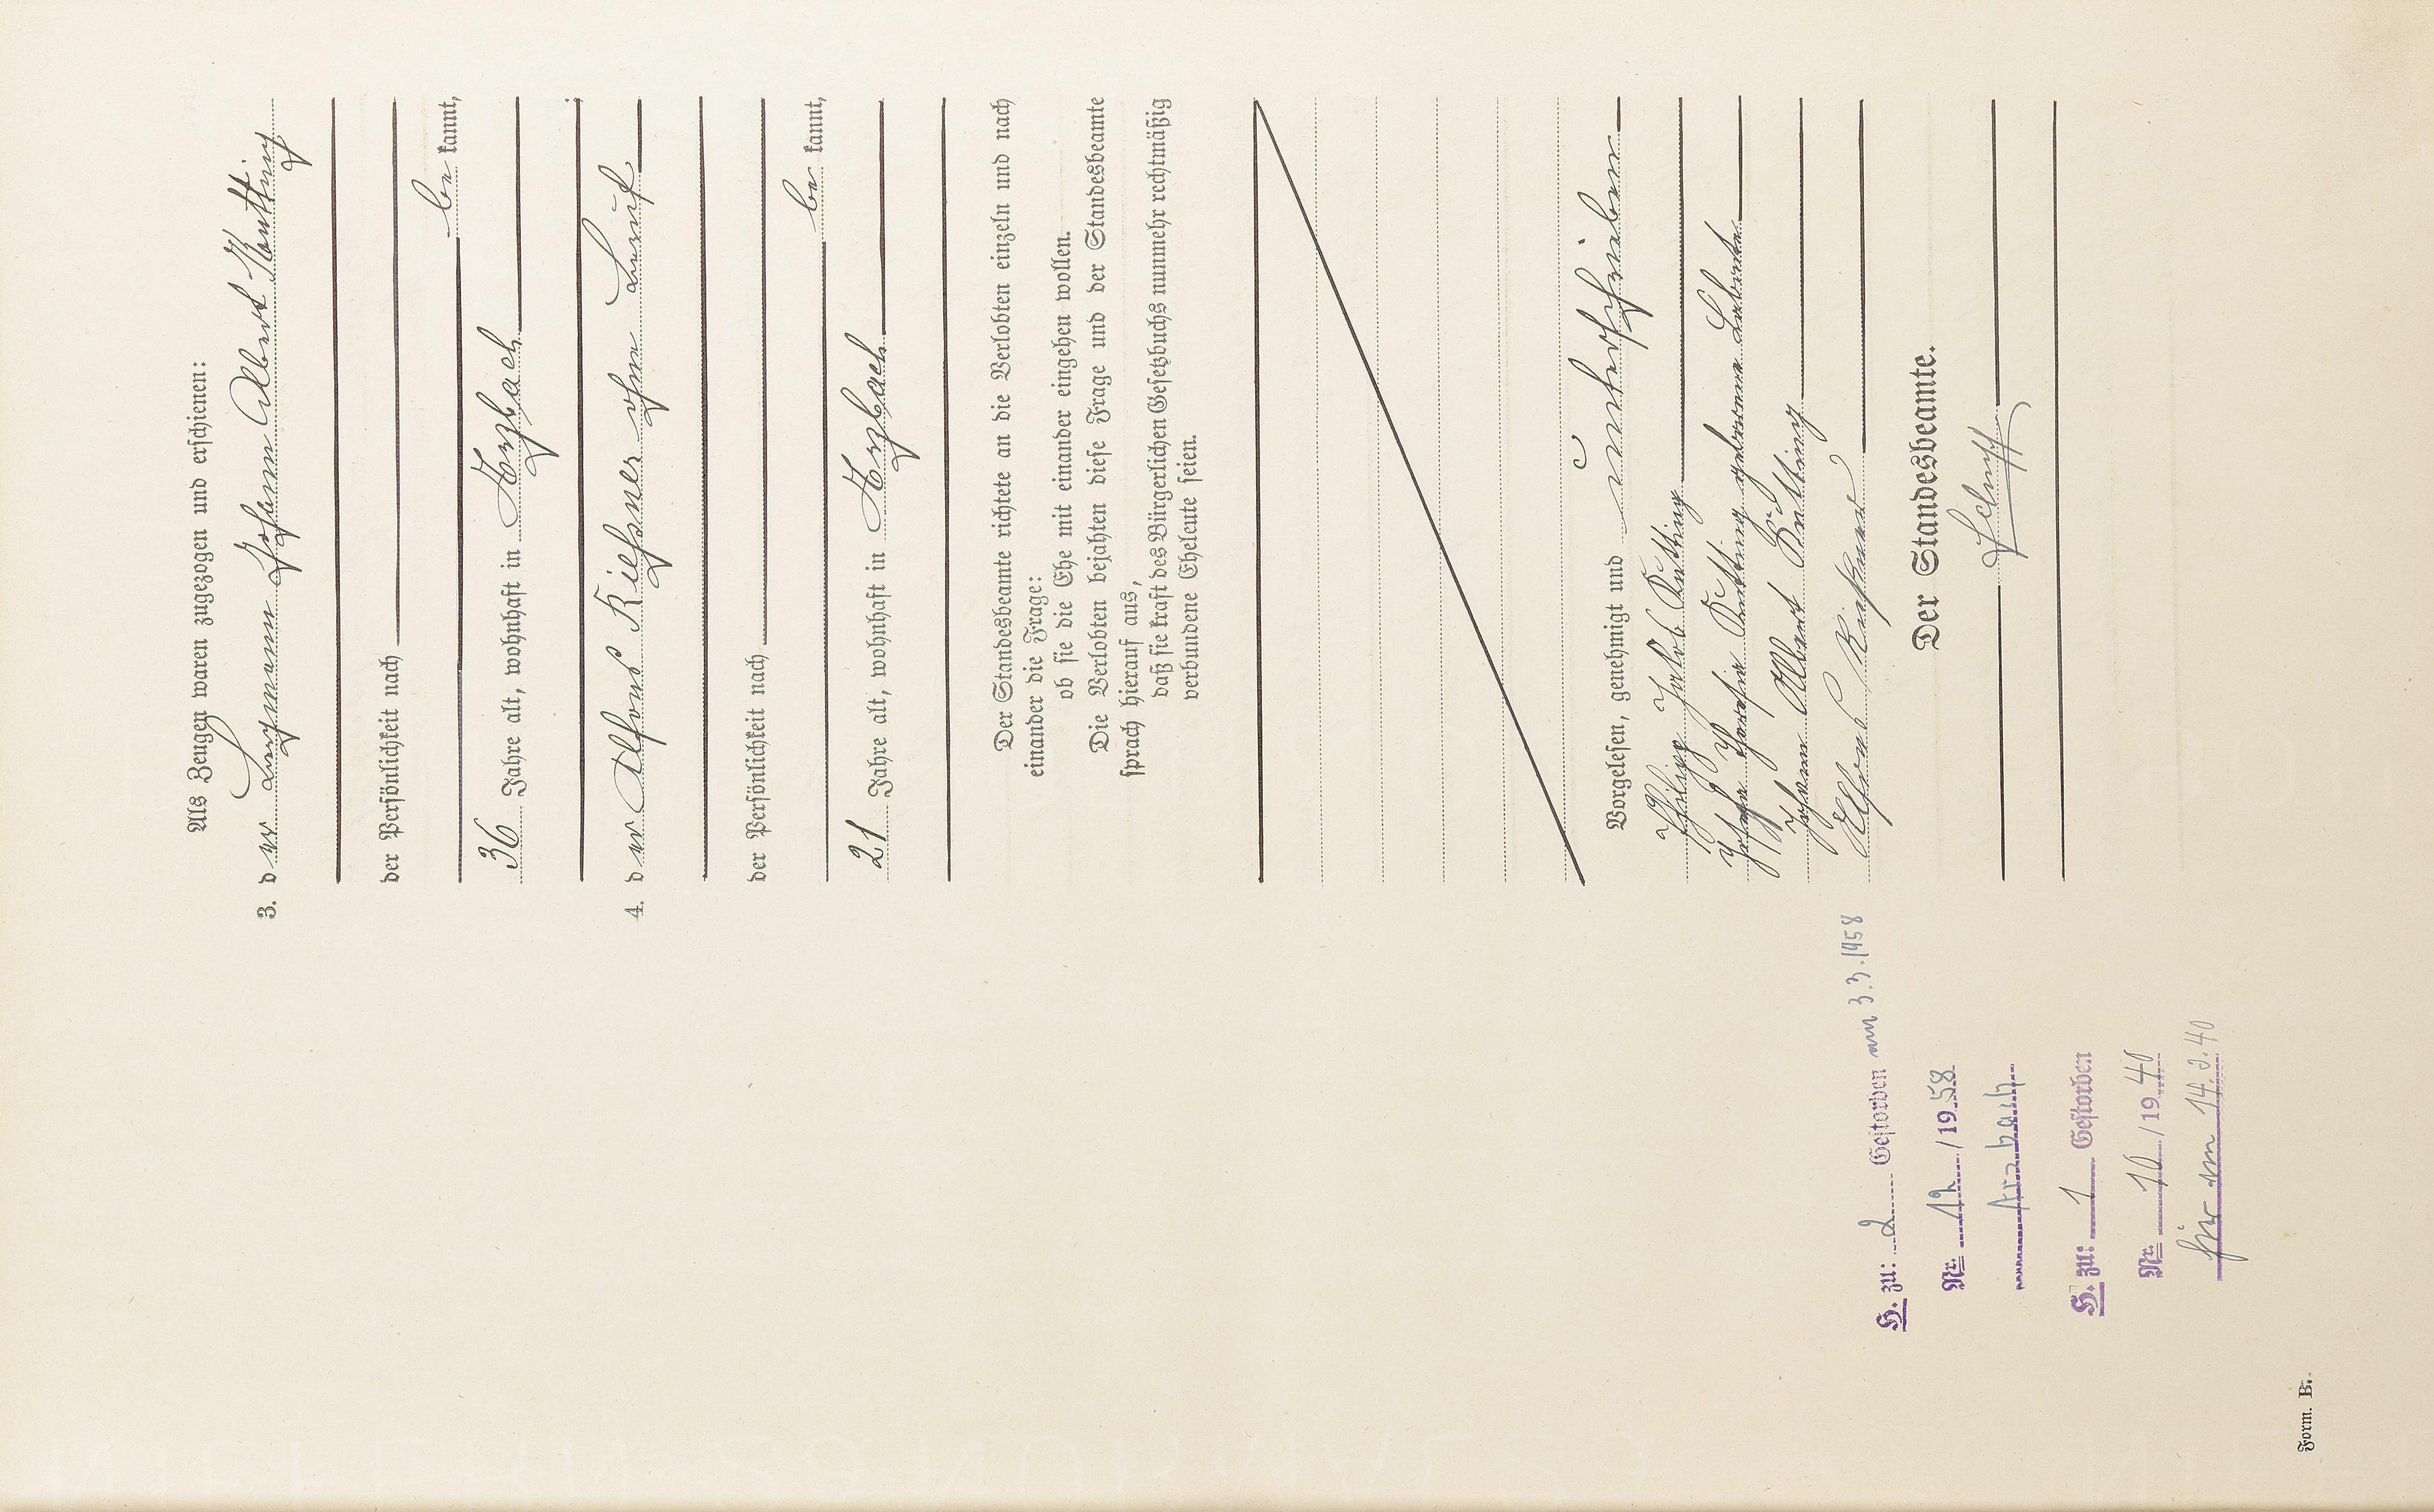 Als Zeugen waren zugezogen und erschienen:
3. der Bergmann Johann Albert Kütting
der Persönlichkeit nach
be kannt,
36 Jahre alt, wohnhaft in Arzbach
4. der Alfons Kießner ohne Beruf
der Persönlichkeit nach
be kannt,
21 Jahre alt, wohnhaft in Arzbach
Der Standesbeamte richtete an die Verlobten einzeln und nach
einander die Frage:
ob sie die Ehe mit einander eingehen wollen.
Die Verlobten bejahten diese Frage und der Standesbeamte
sprach hierauf aus,
daß sie kraft des Bürgerlichen Gesetzbuchs nunmehr rechtmäßig
verbundene Eheleute seien.
Vorgelesen, genehmigt und unterschrieben
Philipp Jakob Kütting
Kütting geborene
Johann Albert Kütting
Alfons Kießner
Der Standesbeamte.
H. zu: 2 Gestorben am 3.3.1958
Nr. 12/1958
Arzbach
H. zu: 1 Gestorben
Nr. 10/1940
für am 14.2.40
Form. B.